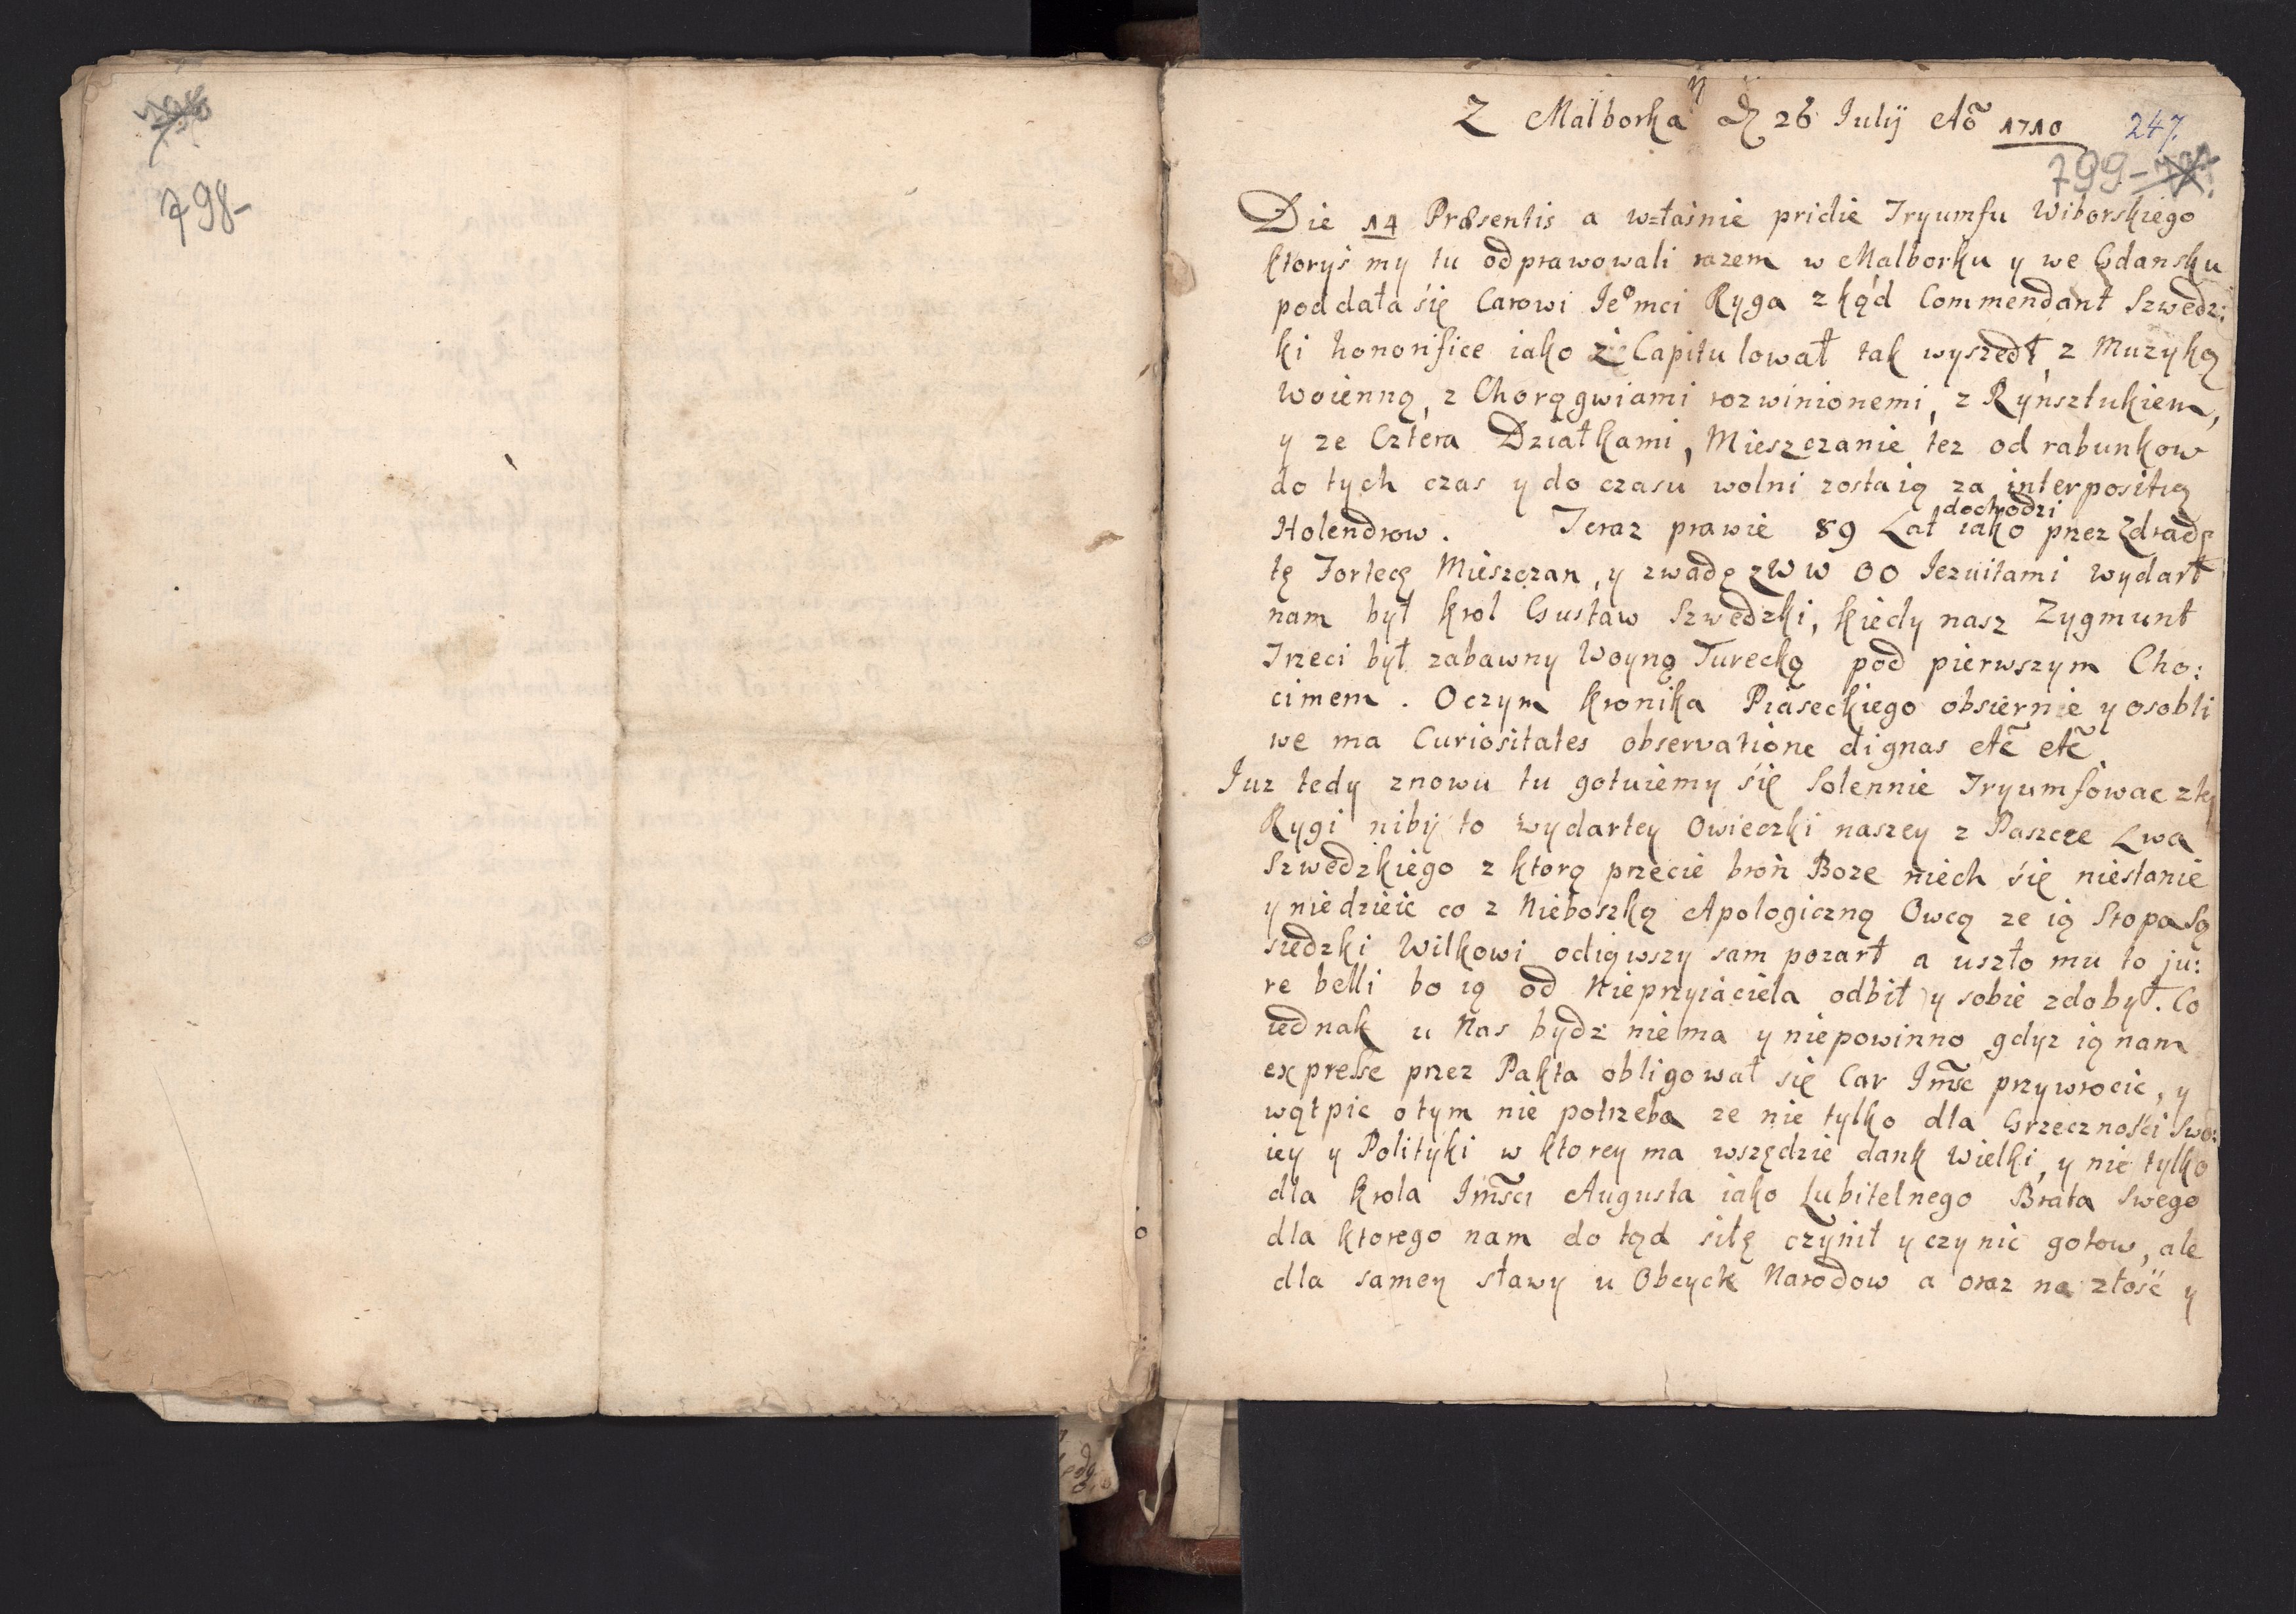 798-
Z Malborka d 26 Julij Aõ 1710
247.
799-
Die 14 Præsentis a w=łaśnie pridie Tryumfu Wiborskiego
ktoryś my tu odprawowali razem w Malborku y we Gdansku
poddała się Carowi Jeomci Ryga zkąd Commendant Szwedz:
ki honorifice iako z Capitulował tak wyszedł, z Muzyką
woienną, z Chorągwiami rozwinionemi, z Rynsztukiem,
y ze Cztera Działkami, Mieszczanie tez od rabunkow
do tych czas y do czasu wolni zostaią za interpositią
Holendrow. Teraz prawie 89 Lat dochodzi iako przez Zdradę
tę Fortecę Mieszczan, y zwadę z W W OO Jezuitami wydarł
nam był krol Gustaw Szwedzki, kiedy nasz Zygmunt
Trzeci był zabawny Woyną Turecką pod pierwszym Cho:
cimem. Oczym kronika Piaseckiego obsiernie y osobli
we ma Curiositates observatione dignas etc̃ etc̃
Juz tedy znowu tu gotuiemy się Solennie Tryumfowac z tey
Rygi niby to wydartey Owieczki naszey z Paszcze Lwa
Szwedzkiego z ktorą przecie broń Boze niech się niestanie
y niedzieie co z Nieboszką Apologiczną Owcą ze ią Stopa Są
siedzki Wilkowi odiąwszy sam pozarł a uszło mu to ju:
re belli bo ią od Nieprzyiaciela odbił y sobie zdobył. Co
iednak u Nas bydz niema y niepowinno gdyz ią nam
expresse przez Pakta obligował się Car Jm̃sc przywrocic, y
wątpic otym nie potrzeba ze nie tylko dla Grzeczności Swo:
iey y Polityki w ktorey ma wszędzie dank wielki, y nie tylko
dla krola Jm̃sci Augusta iako Lubitelnego Brata Swego
dla ktorego nam do tąd siłę czynił y czynic gotow, ale
dla samey sławy u Obcych Narodow a oraz na złość y